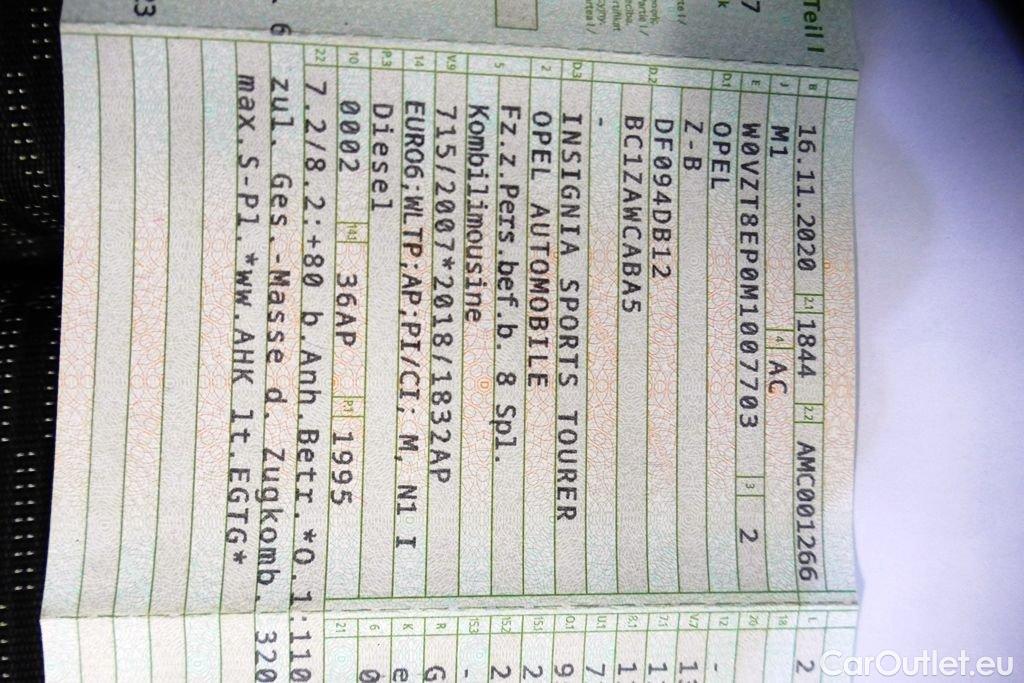 Teil I
B 16.11.2020 2.1 1844 2.2 AMC001266
J M1 4 AC
E W0VZT8EP0M1007703 3 2
D.1 OPEL
Z-B
D.2 DF094DB12
BC1ZAWCABA5
-
D.3 INSIGNIA SPORTS TOURER
2 OPEL AUTOMOBILE
5 Fz.z.Pers.bef.b. 8 Spl.
Kombilimousine
V.9 715/2007*2018/1832AP
14 EURO6;WLTP;AP;PI/CI; M, N1 I
P.3 Diesel
10 0002 14.1 36AP P.1 1995
22 7.2/8.2:+80 b.Anh.Betr.*O.1:110
zul. Ges.-Masse d. Zugkomb. 320
max.S-Pl.*ww.AHK lt.EGTG*
L 2
18
20
12 -
V.7 13
7.1 1
8.1 1
U.1 7
O.1 9
15.1 2
15.2 2
15.3 -
R G
K e
6 0
21
CarOutlet.eu